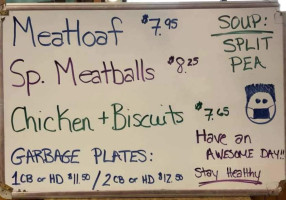 Meatloaf $7.95
Sp. Meatballs $8.25
Chicken + Biscuits $7.65
GARBAGE PLATES:
1 CB or HD $11.50 / 2 CB or HD $12.50
SOUP:
SPLIT
PEA
Have an
AWESOME DAY!!
Stay Healthy